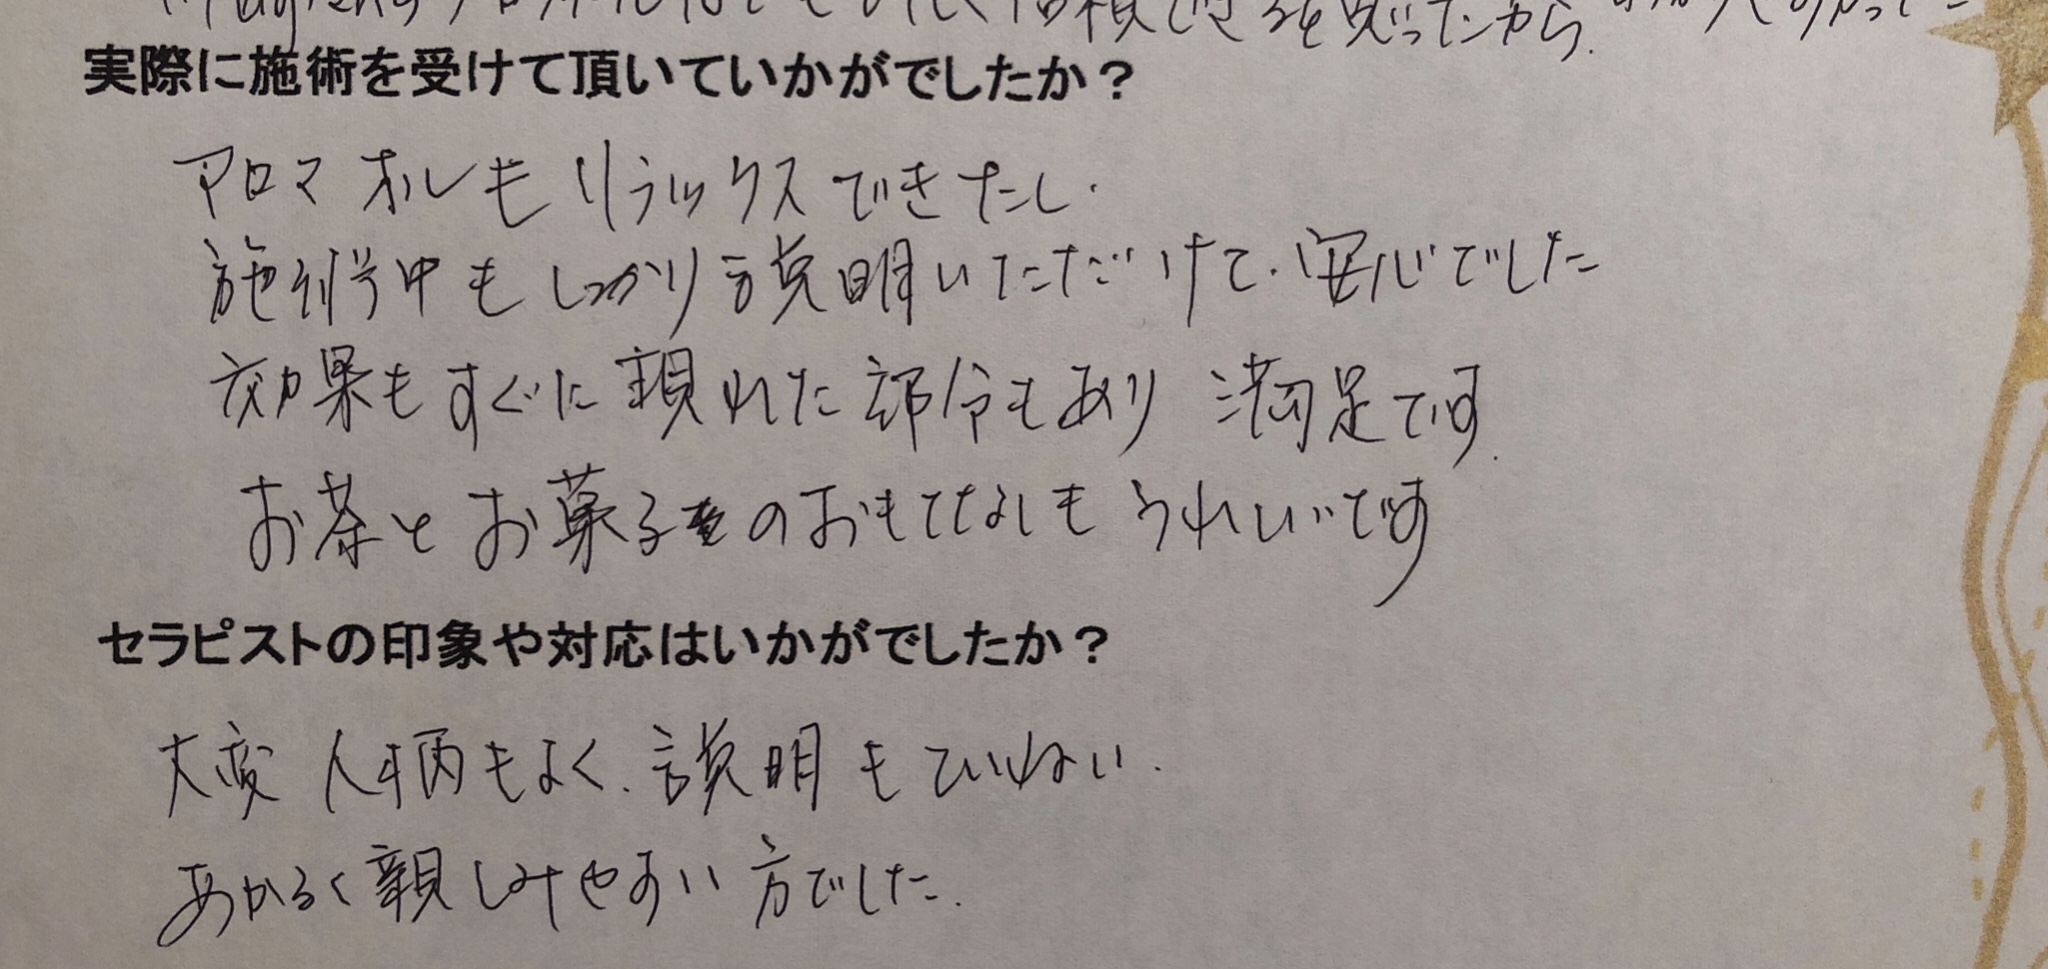 を見つけたから
実際に施術を受けて頂いていかがでしたか？
アロマオイルもリラックスできたし、
施術中もしっかり説明いただけて、安心でした
効果もすぐに現れた部分もあり 満足です。
お茶とお菓子のおもてなしもうれしいです
セラピストの印象や対応はいかがでしたか？
大変 人柄もよく、説明もていねい、
あかるく親しみやすい方でした。